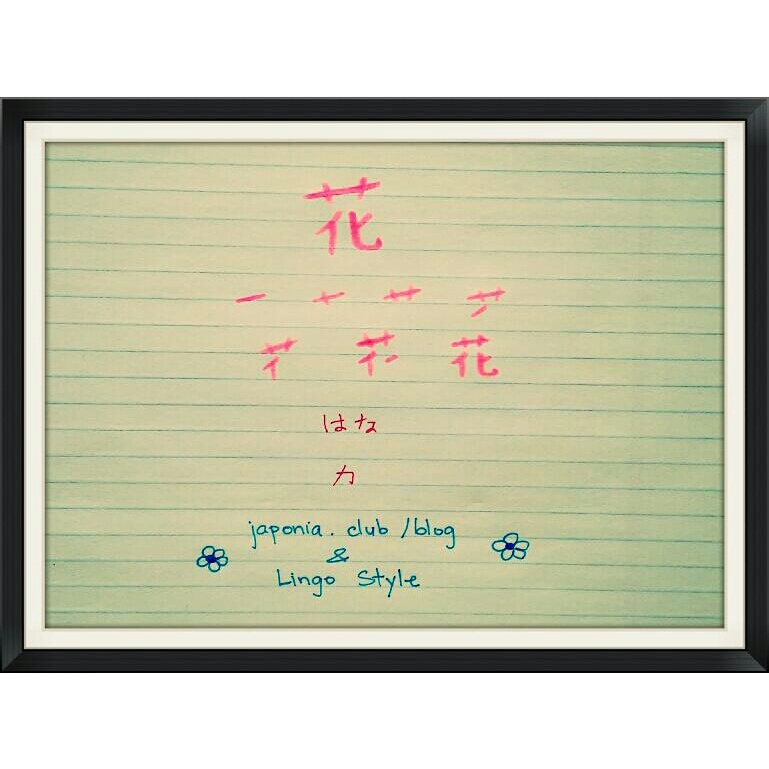 花
一 十 艹
花
はな
カ
japonia.club/blog
&
Lingo Style